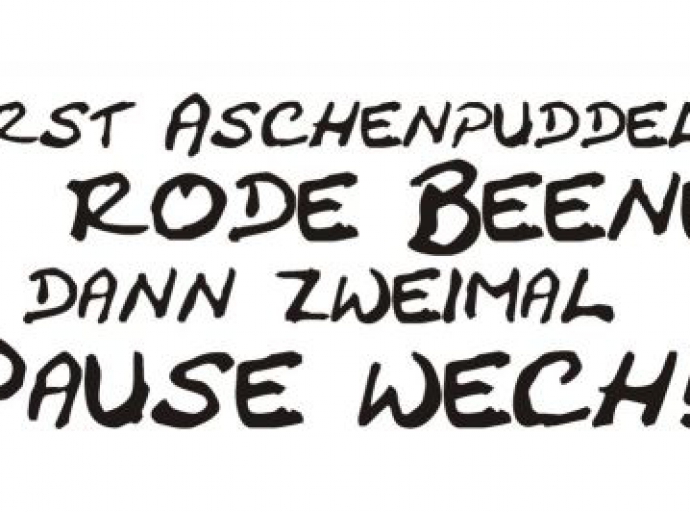 RST ASCHENPUDDEL
RODE BEEN
DANN ZWEIMAL
PAUSE WECH!